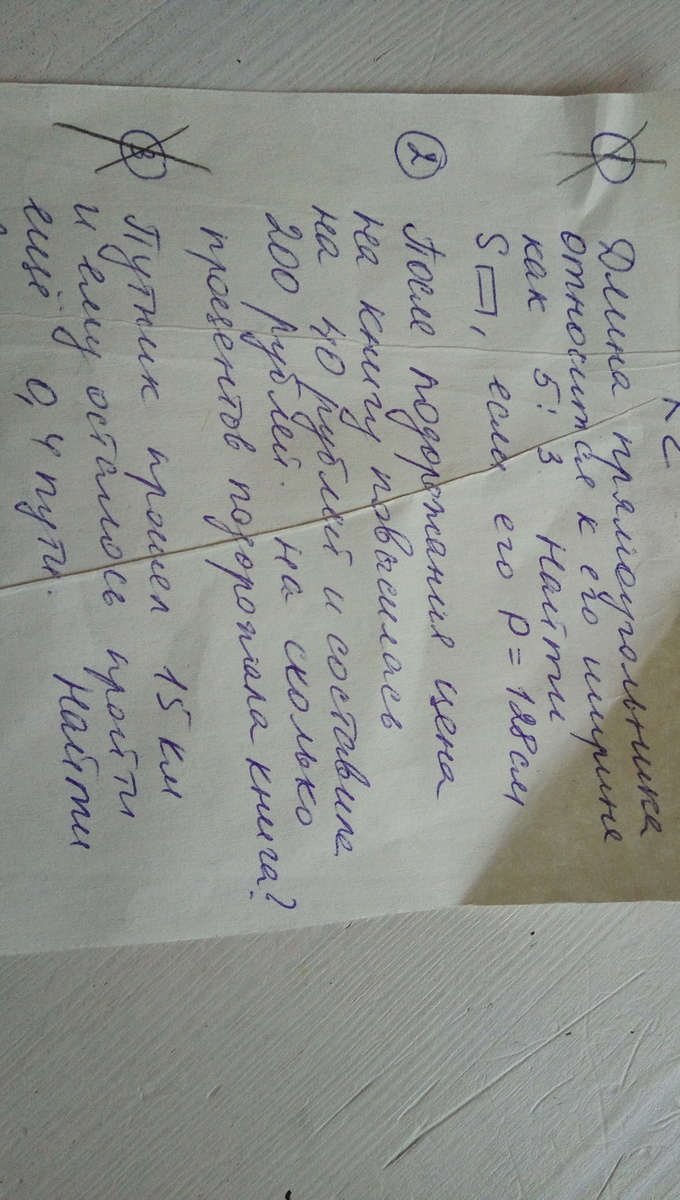 К 2
1 Длина прямоугольника
относится к его ширине
как 5:3 Найти
S▭, если его P=128см
2 После подорожания цена
на книгу повысилась
на 40 рублей и составила
200 рублей. На сколько
процентов подорожала книга?
3 Путник прошел 15 км
и ему осталось пройти
ещё 0,4 пути. Найти